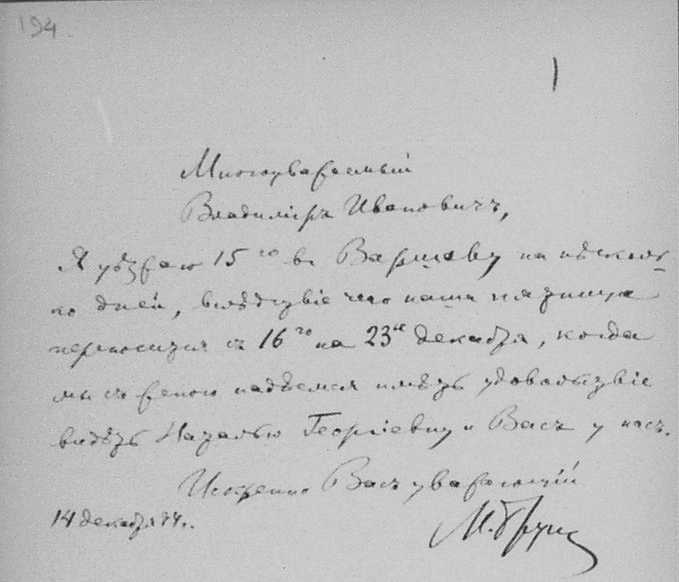 194.
1
Многоуважаемый
Владиміръ Ивановичъ,
Я уѣзжаю 15го въ Варшаву на нѣсколь-
ко дней, вслѣдствіе чего наша пятница
переносится съ 16го на 23ье декабря, когда
мы съ женою надѣемся имѣть удовольствіе
видѣть Наталью Георгіевну и Васъ у насъ.
Искренно Васъ уважающій
14 декабря